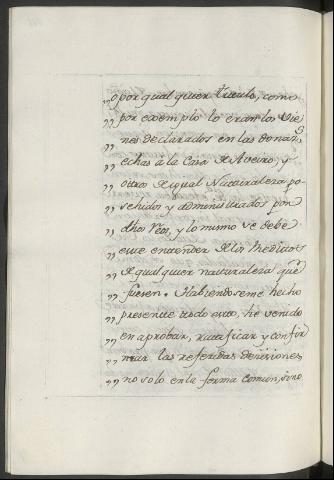 ,,o por qual quier titulo, como
,, por exemplo lo eran los Bie
,, nes declarados en las donas
,, echas á la Casa de Aveiro, y
,, otros de igual Naturaleza po-
,, sehidos y administrados por
,, dhos Reos, y lo mismo se debe
,, este entender de los Meditos
,, de qualquier naturaleza que
,, fuesen. Habiendoseme hecho
,, presente todo esto, hé venido
,, en aprobar, ratificar y confir
,, mar las referidas decisiones
,, no solo en la forma comun, sino